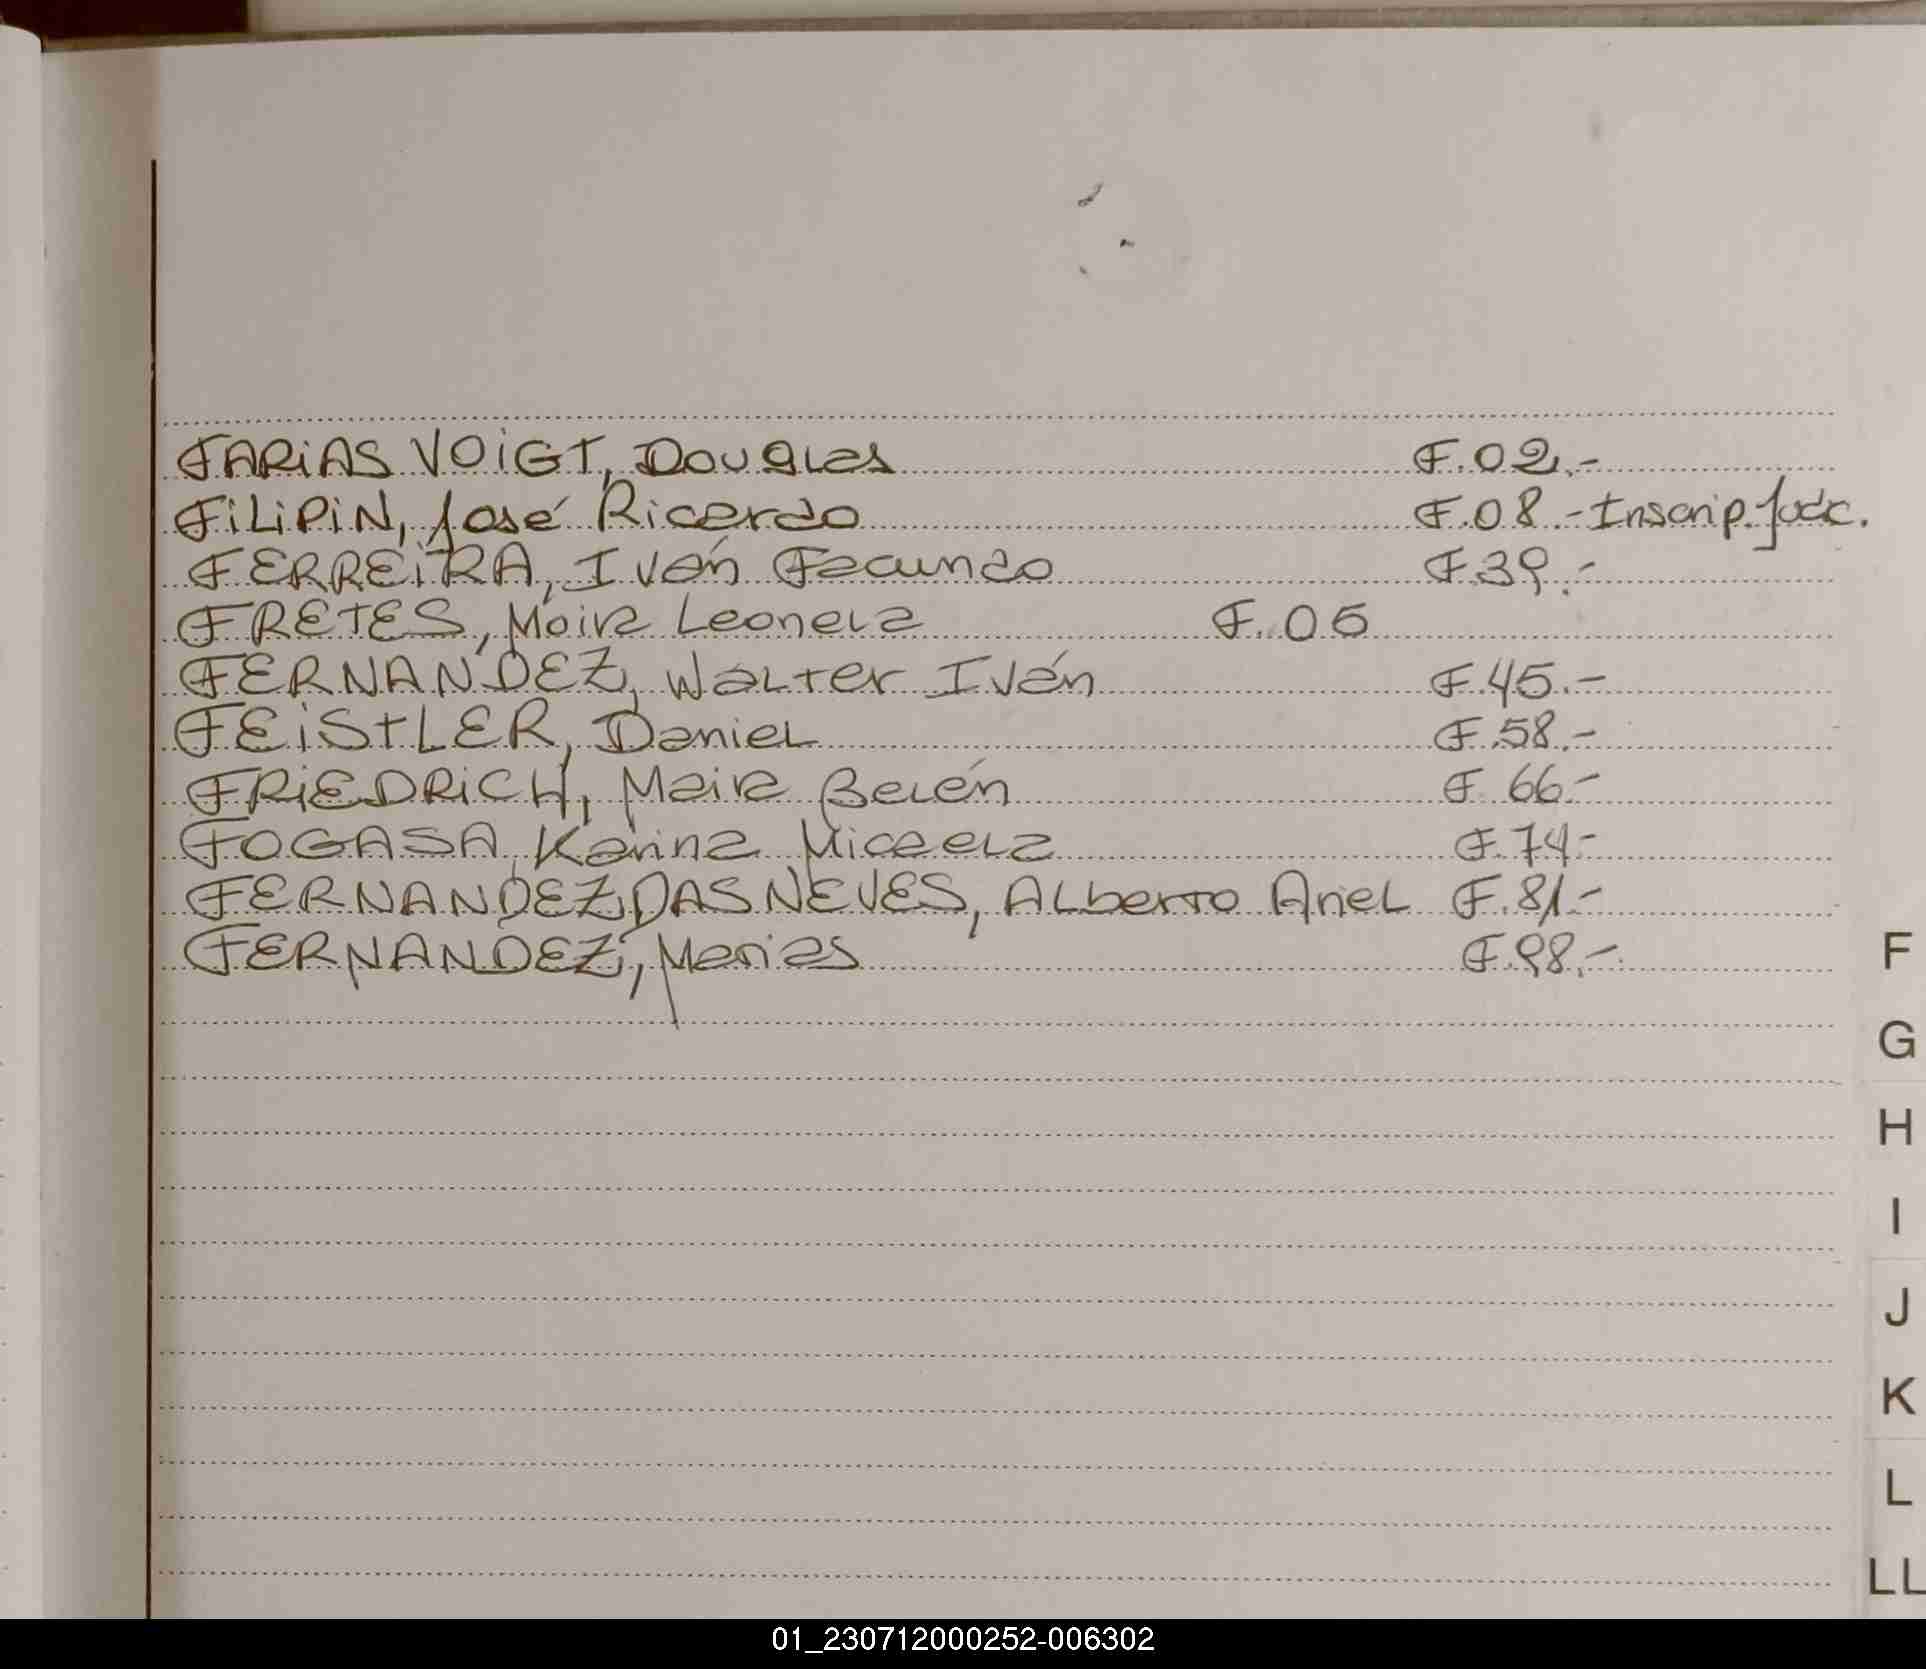 FARIAS VOIGT, Douglas F.02.-
FILIPIN, José Ricardo F.08.- Inscrip. Judc.
FERREIRA, Iván Facundo F.39.-
FRETES, Moira Leonela F.05
FERNANDEZ, Walter Iván F.45.-
FEISTLER, Daniel F.58.-
FRIEDRICH, Maira Belén F.66-
FOGASA, Karina Micaela F.74-
FERNANDEZ DAS NEVES, Alberto Ariel F.81.-
FERNANDEZ, Marias F.98.-
F
G
H
I
J
K
L
LL
01_230712000252-006302